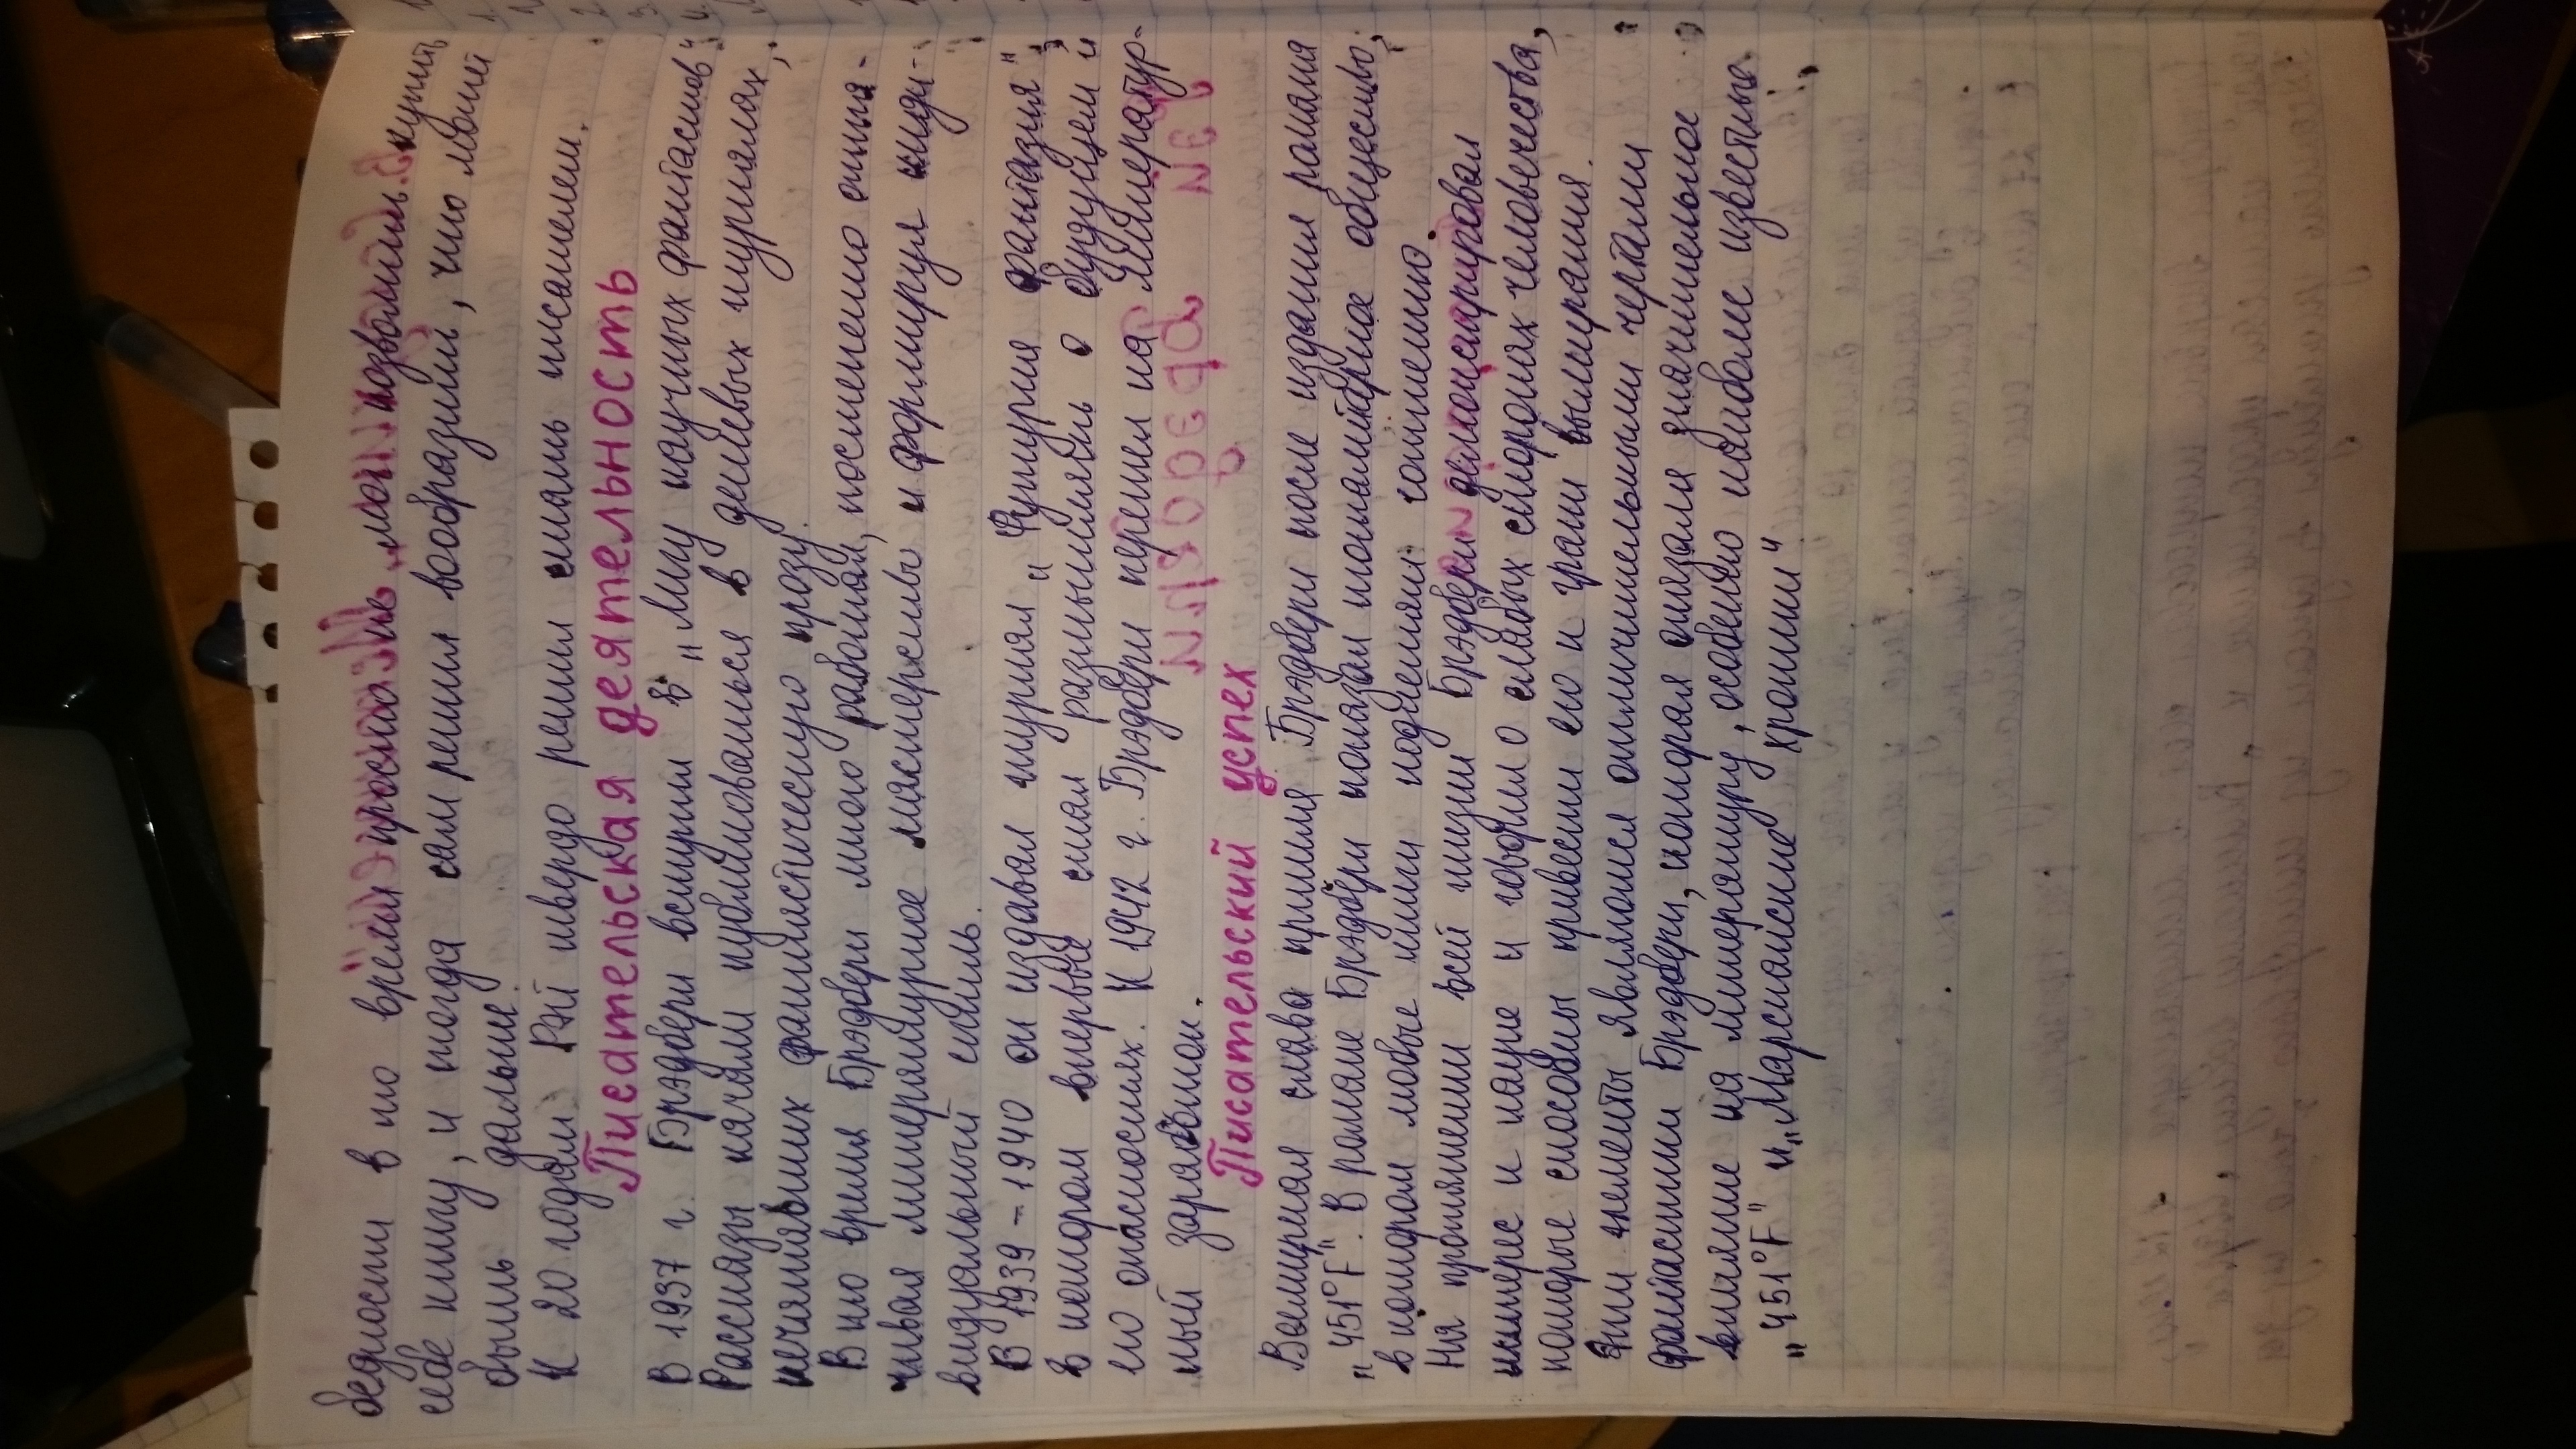 бедности в то время просто не мог позволить купить
себе книгу, и тогда сам решил вообразить, что могло
быть дальше.
К 20 годам Рэй твердо решил стать писателем.
Писательская деятельность
В 1937 г. Брэдбери вступил в "Лигу научных фантастов"
Рассказы начали публиковаться в дешевых журналах,
печатавших фантастическую прозу.
В это время Брэдбери много работал, постепенно отта-
чивая литературное мастерство и формируя инди-
видуальный стиль.
В 1939 - 1940 он издавал журнал "Футурия Фантазия"
в котором впервые стал размышлять о будущем и
его опасностях. К 1942 г. Брэдбери перешел на литератур-
ный заработок.
Писательский успех
Всемирная слава пришла Брэдбери после издания романа
"451°F". В романе Брэдбери показал тоталитарное общество,
в котором любые книги подлежат сожжению.
На протяжении всей жизни Брэдбери демонстрировал
интерес к науке и говорил о слабых сторонах человечества,
которые способны привести его к грани вымирания.
Эти элементы являются отличительными чертами
фантастики Брэдбери, которая оказала значительное
влияние на литературу, особенно наиболее известные
"451°F" и "Марсианские хроники"